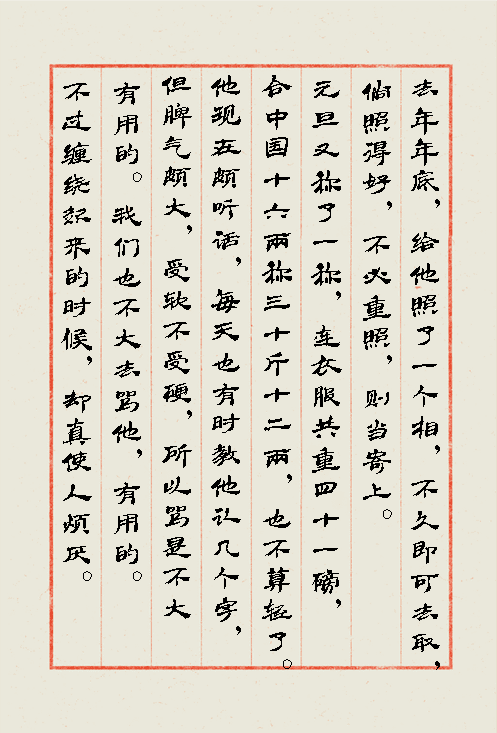 去年年底，给他照了一个相，不久即可去取，
倘照得好，不必重照，则当寄上。
元旦又称了一称，连衣服共重四十一磅，
合中国十六两称三十斤十二两，也不算轻了。
他现在颇听话，每天也有时教他认几个字，
但脾气颇大，受软不受硬，所以骂是不大
有用的。我们也不大去骂他，有用的。
不过缠绕起来的时候，却真使人烦厌。